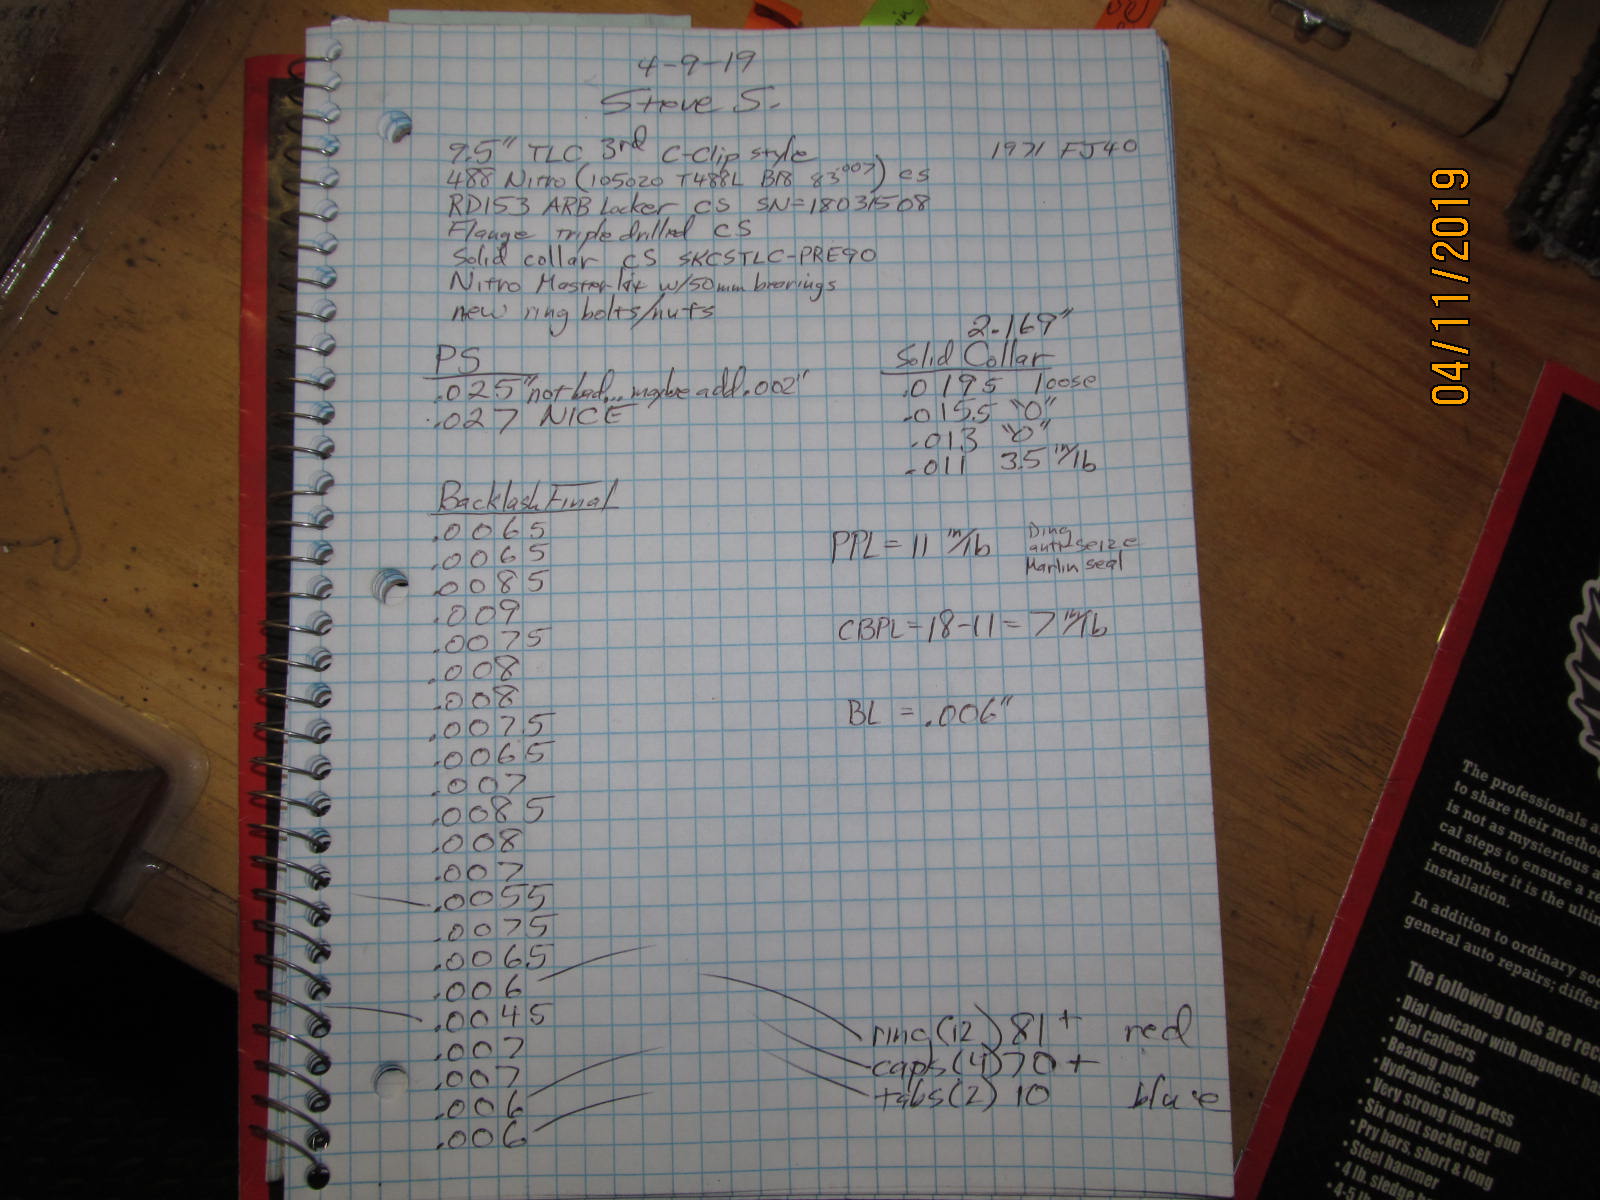 4-9-19
Steve S.
9.5" TLC 3rd C-Clip style 1971 FJ40
488 Nitro (105020 T488L B18 83.007) CS
RD153 ARB Locker CS SN=18031508
Flange triple drilled CS
Solid collar CS SKCSTLC-PRE90
Nitro Master kit w/50mm bearings
new ring bolts/nuts
PS
.025" not bad... maybe add .002"
.027 NICE
2.169"
Solid Collar
.0195 loose
.0155 "0"
.013 "0"
.011 3.5 in/lb
Backlash Final
.0065
.0065
.0085
.009
.0075
.008
.008
.0075
.0065
.007
.0085
.008
.007
.0055
.0075
.0065
.006
.0045
.007
.007
.006
.006
PPL = 11 in/lb
anti-seize
Marlin seal
CBPL = 18-11 = 7 in/lb
BL = .006"
ring (12) 81+ red
caps (4) 70+
tabs (2) 10 blue
04/11/2019
The professionals a
to share their metho
is not as mysterious a
cal steps to ensure a re
remember it is the ultim
installation.
In addition to ordinary soc
general auto repairs; differ
The following tools are rec
• Dial indicator with magnetic ba
• Dial calipers
• Bearing puller
• Hydraulic shop press
• Very strong impact gun
• Six point socket set
• Pry bars, short & long
• Steel hammer
• 4 lb. sledge